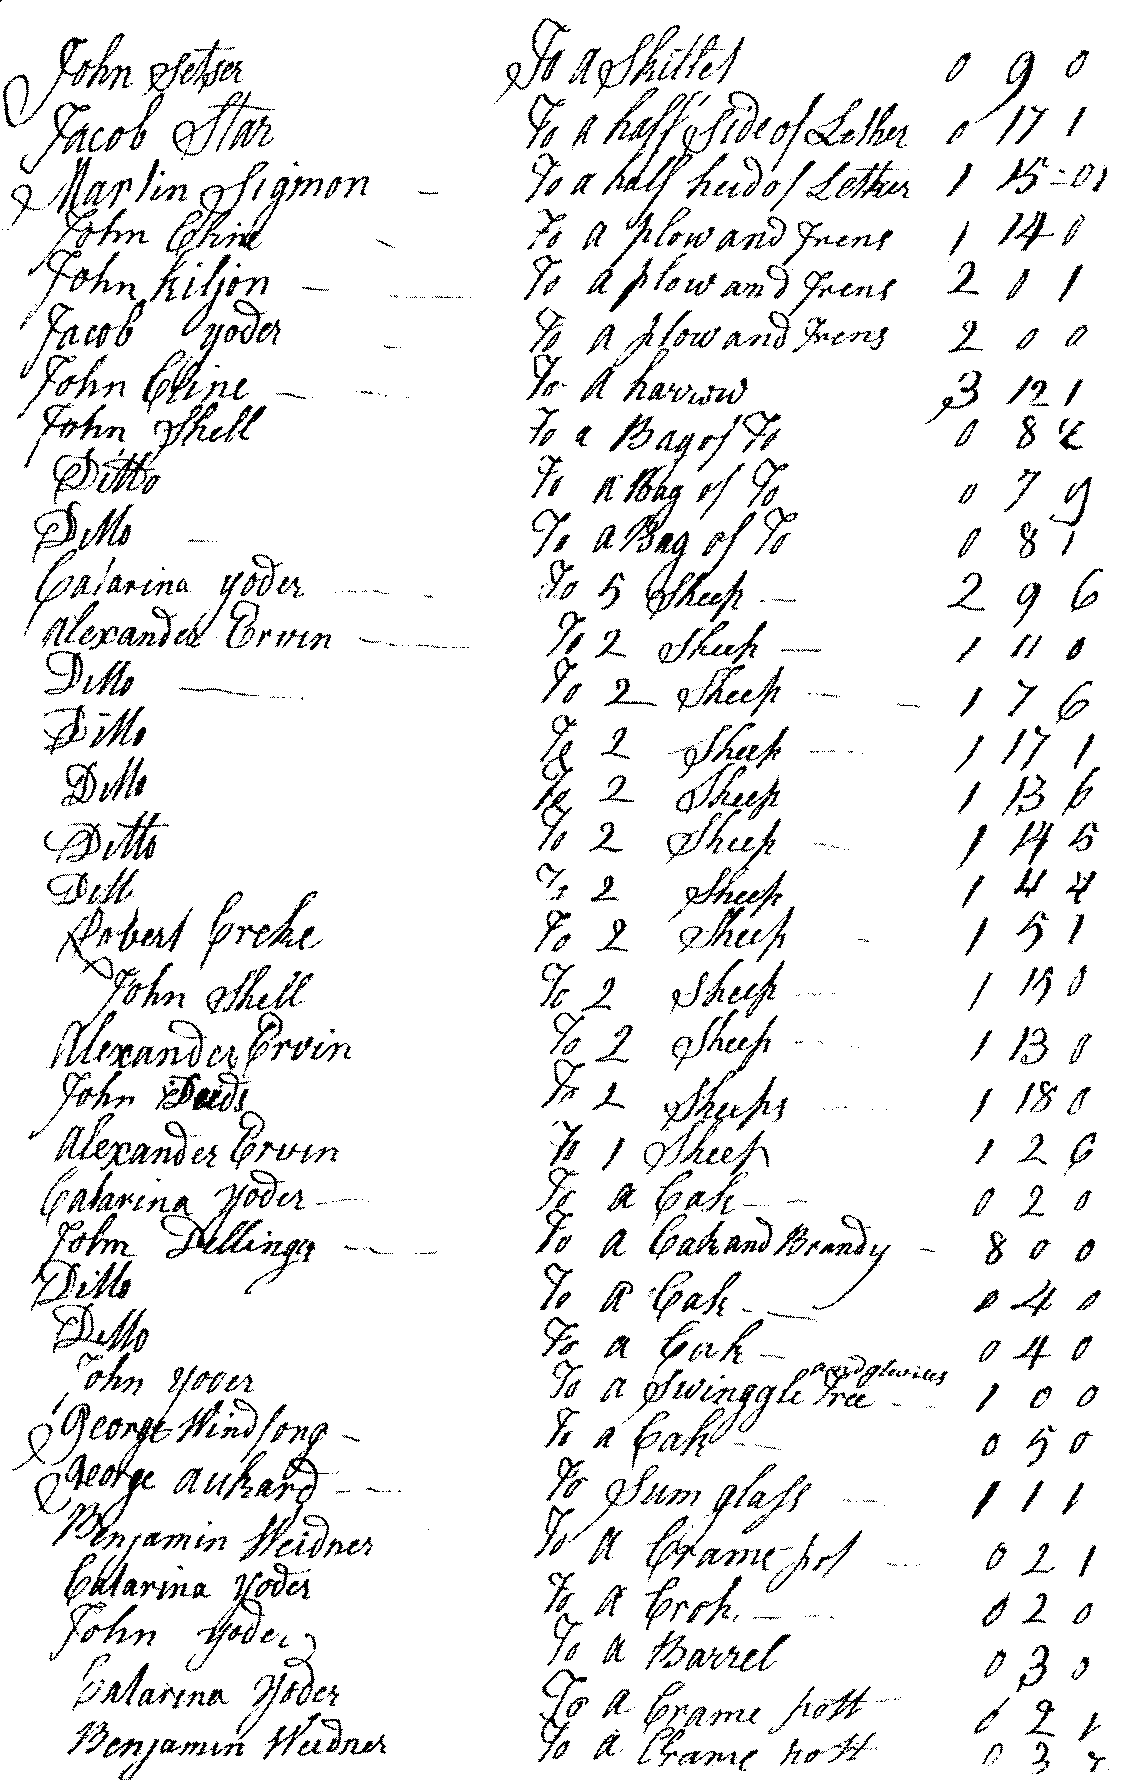 John Setser To a Skittel 0 9 0
Jacob Star To a half Side of Lether 0 17 1
Martin Sigmon - To a half hid of Lether 1 15 = 01
John Cline - To a plow and Irens 1 14 0
John Kiljon - To a plow and Irens 2 0 1
Jacob Yoder - To a plow and Irens 2 0 0
John Cline - To a harrow 3 12 1
John Shell To a Bag of To 0 8
Ditto To a Bag of To 0 7 9
Ditto - To a Bag of To 0 8 1
Catarina Yoder - To 5 Sheep - 2 9 6
Alexander Ervin - To 2 Sheep - 1 11 0
Ditto - To 2 Sheep - 1 7 6
Ditto To 2 Sheep - 1 17 1
Ditto To 2 Sheep 1 13 6
Ditto To 2 Sheep - 1 14 5
Ditt To 2 Sheep 1 4 4
Robert Creke To 2 Sheep - 1 5 1
John Shell To 2 Sheep - 1 15 0
Alexander Ervin To 2 Sheep - 1 13 0
John Deeds To 2 Sheeps - 1 18 0
Alexander Ervin To 1 Sheep 1 2 6
Catarina Yoder - To a Cak - 0 2 0
John Dellinger - To a Cak and Brandy - 8 0 0
Ditto To a Cak - 0 4 0
Ditto To a Cak - 0 4 0
John Yoder To a Swinggle Tree and - 1 0 0
George Windsong - To a Cak - 0 5 0
George Aukard - To Sum glass - 1 1 1
Benjamin Weidner To a Crame pot - 0 2 1
Catarina Yoder To a Crok. - 0 2 0
John Yoder To a Barrel 0 3 0
Catarina Yoder To a Crame pott - 0 2 1
Benjamin Weidner To a Crame pott - 0 3